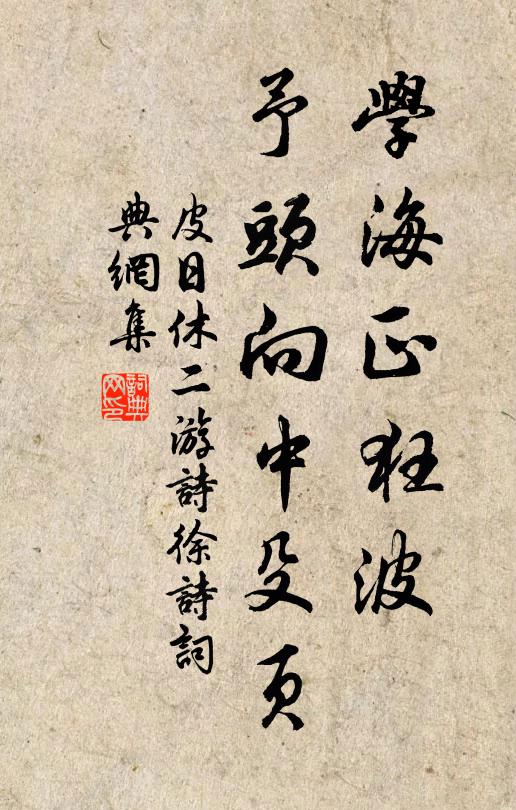 學海正狂波
予頭向中𠬛頁
皮日休二游詩徐詩詞
典網集
詞典網印